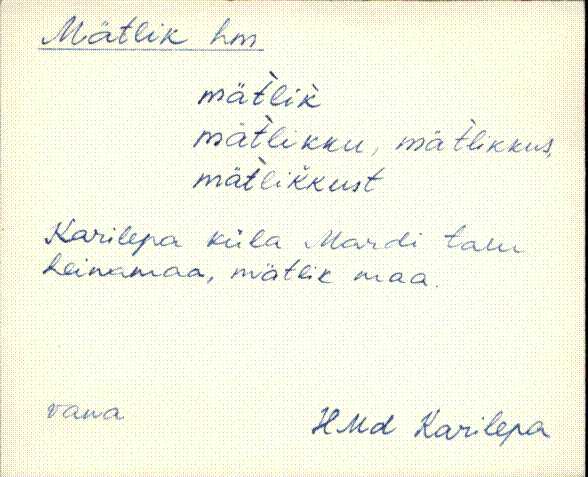 Mätlik hm
mät̀lik̀
mät̀likku, mät̀likkus,
mät̀likkust
Karilepa küla Mardi talu
heinamaa, mätlik maa.
vana
HMd Karilepa